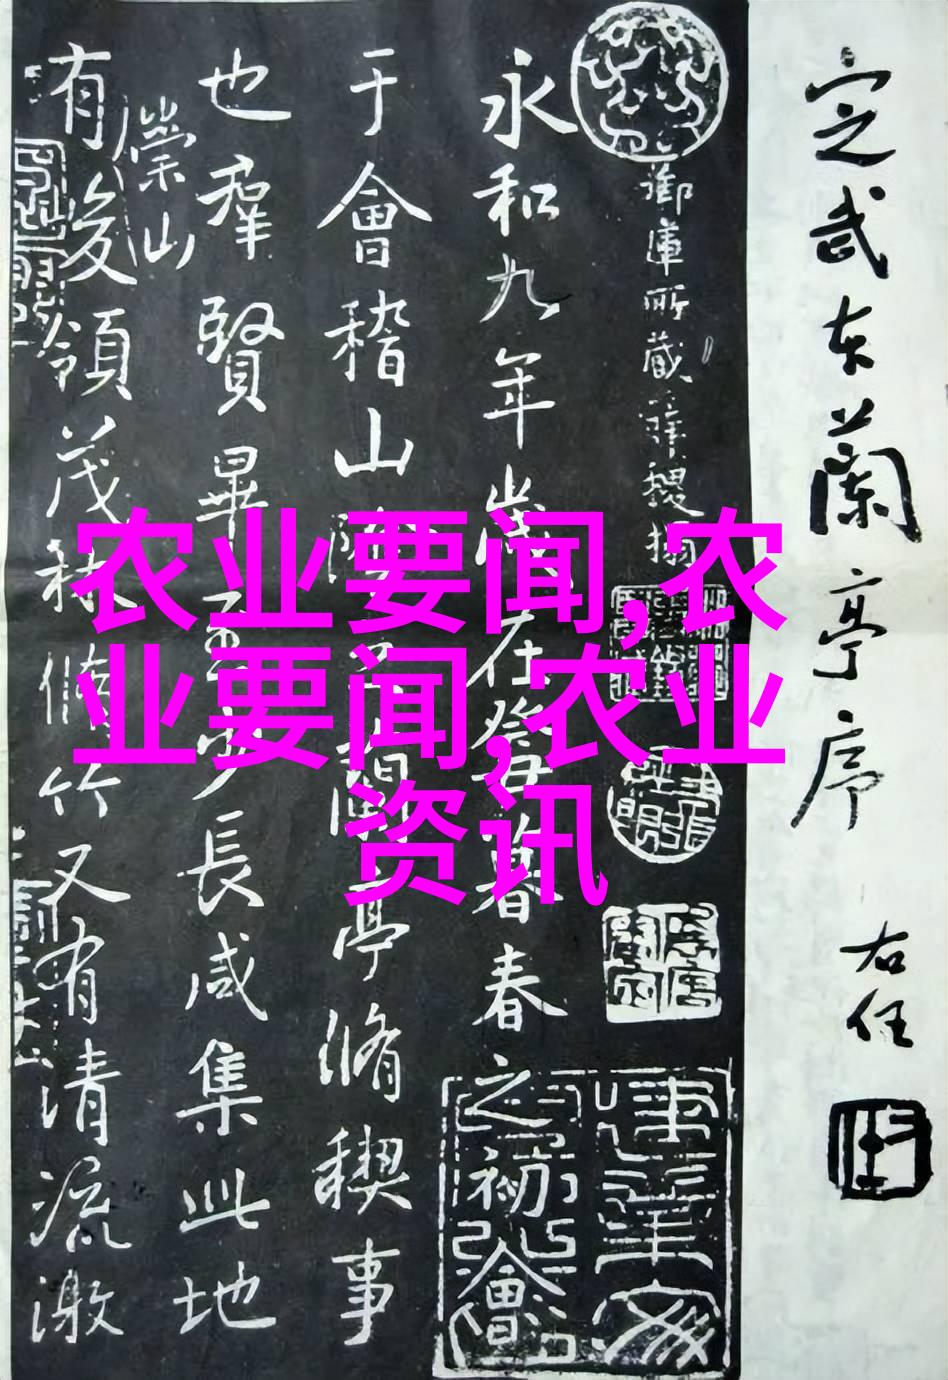 定武本蘭亭序
右任
御庫所藏薛稷搨
永和九年歲在癸丑暮春之初會
于會稽山陰之蘭亭脩禊事
也羣賢畢至少長咸集此地
崇山
有峻領茂林脩竹又有清流激
农业要闻,农
业要闻,农业
资讯